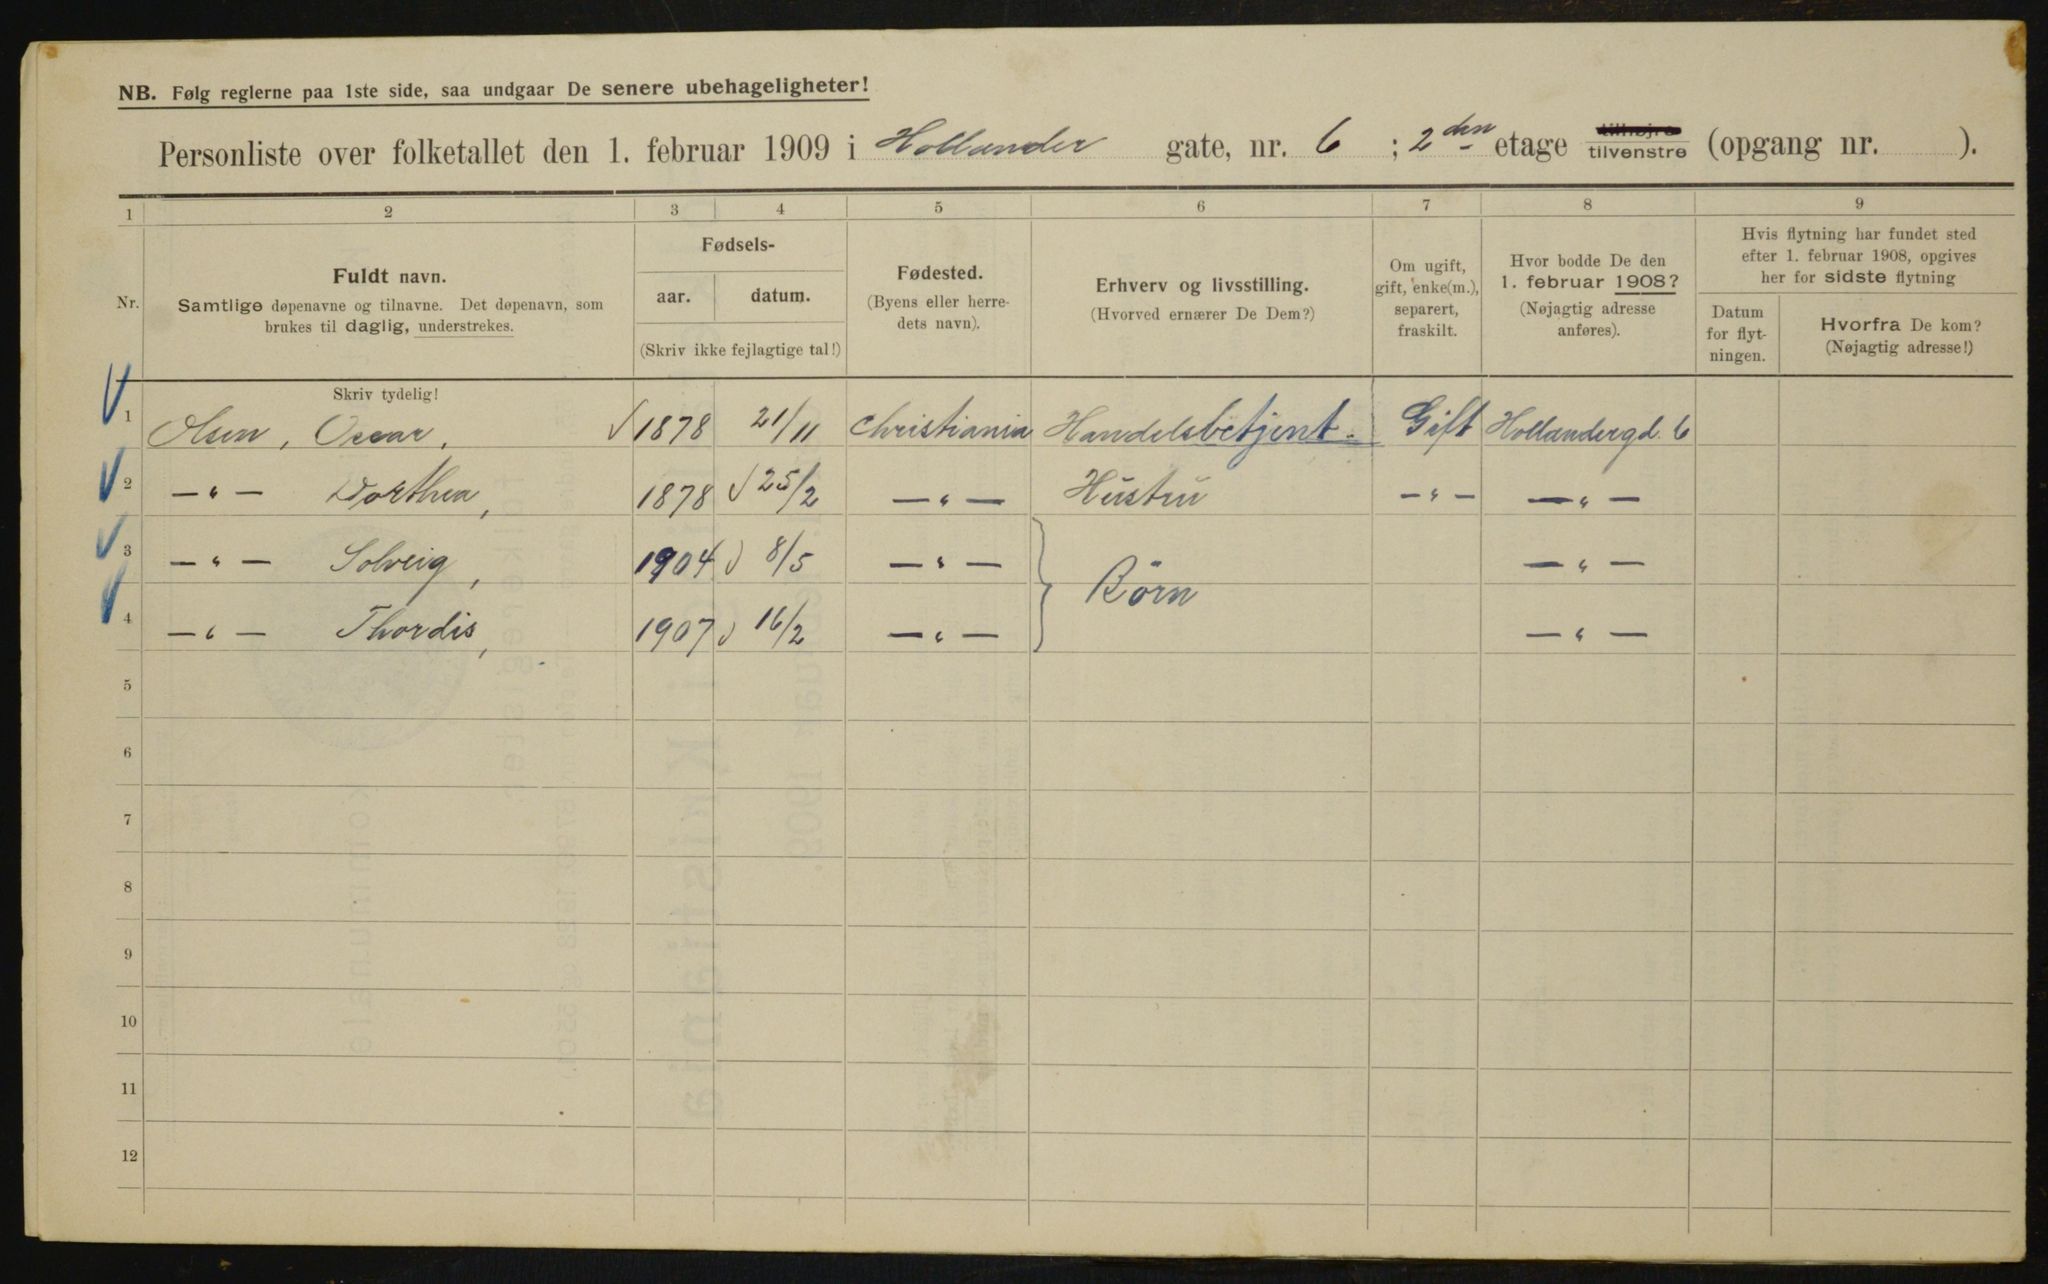 NB. Følg reglerne paa 1ste side, saa undgaar De senere ubehageligheter!
Personliste over folketallet den 1. februar 1909 i Hollander gate, nr. 6 ; 2den etage tilhøjre tilvenstre (opgang nr. ).
1 2 3 4 5 6 7 8 9
Nr.
Fuldt navn.
Samtlige døpenavne og tilnavne. Det døpenavn, som
brukes til daglig, understrekes.
Fødsels-
aar. datum.
(Skriv ikke fejlagtige tal!)
Fødested.
(Byens eller herre-
dets navn).
Erhverv og livsstilling.
(Hvorved ernærer De Dem?)
Om ugift,
gift, enke(m.),
separert,
fraskilt.
Hvor bodde De den
1. februar 1908?
(Nøjagtig adresse
anføres).
Hvis flytning har fundet sted
efter 1. februar 1908, opgives
her for sidste flytning
Datum
for flyt-
ningen.
Hvorfra De kom?
(Nøjagtig adresse!)
Skriv tydelig!
1 Olsen, Oscar, 1878 21/11 Christiania Handelsbetjent. Gift Hollandergd. 6
2 — " — Dorthea, 1878 25/2 — " — Hustru — " — — " —
3 — " — Solveig, 1904 8/5 — " — Børn — " —
4 — " — Thordis, 1907 16/2 — " — — " —
5
6
7
8
9
10
11
12